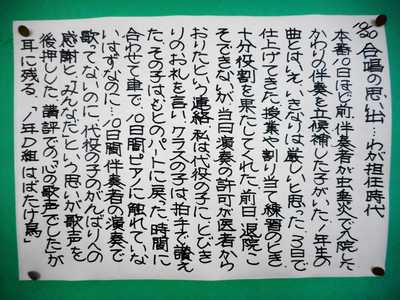 10/20 合唱の思い出…わが担任時代
本番10日ほど前、伴奏者が虫垂炎で入院した。
かわりの伴奏を立候補した子がいた。一年生の
曲とはいえ、いきなりは厳しいと思った。3日で
仕上げてきた。授業や割り当て練習のとき
十分役割を果たしてくれた。前日、退院こ
そできないが、当日演奏の許可が医者から
おりたという連絡。私は代役の子に、とびき
りのお礼を言い、クラスの子は拍手で讃え
た。その子はもとのパートに戻った。時間に
合わせて車で、10日間ピアノに触れてな
いはずなのに…10日間伴奏者の演奏で
歌ってないのに、代役の子のがんばりへの
感謝と、みんなだという思いが歌声を
後押しした。講評での心の歌声でしたが
耳に残る。「1年D組はばたけ鳥」